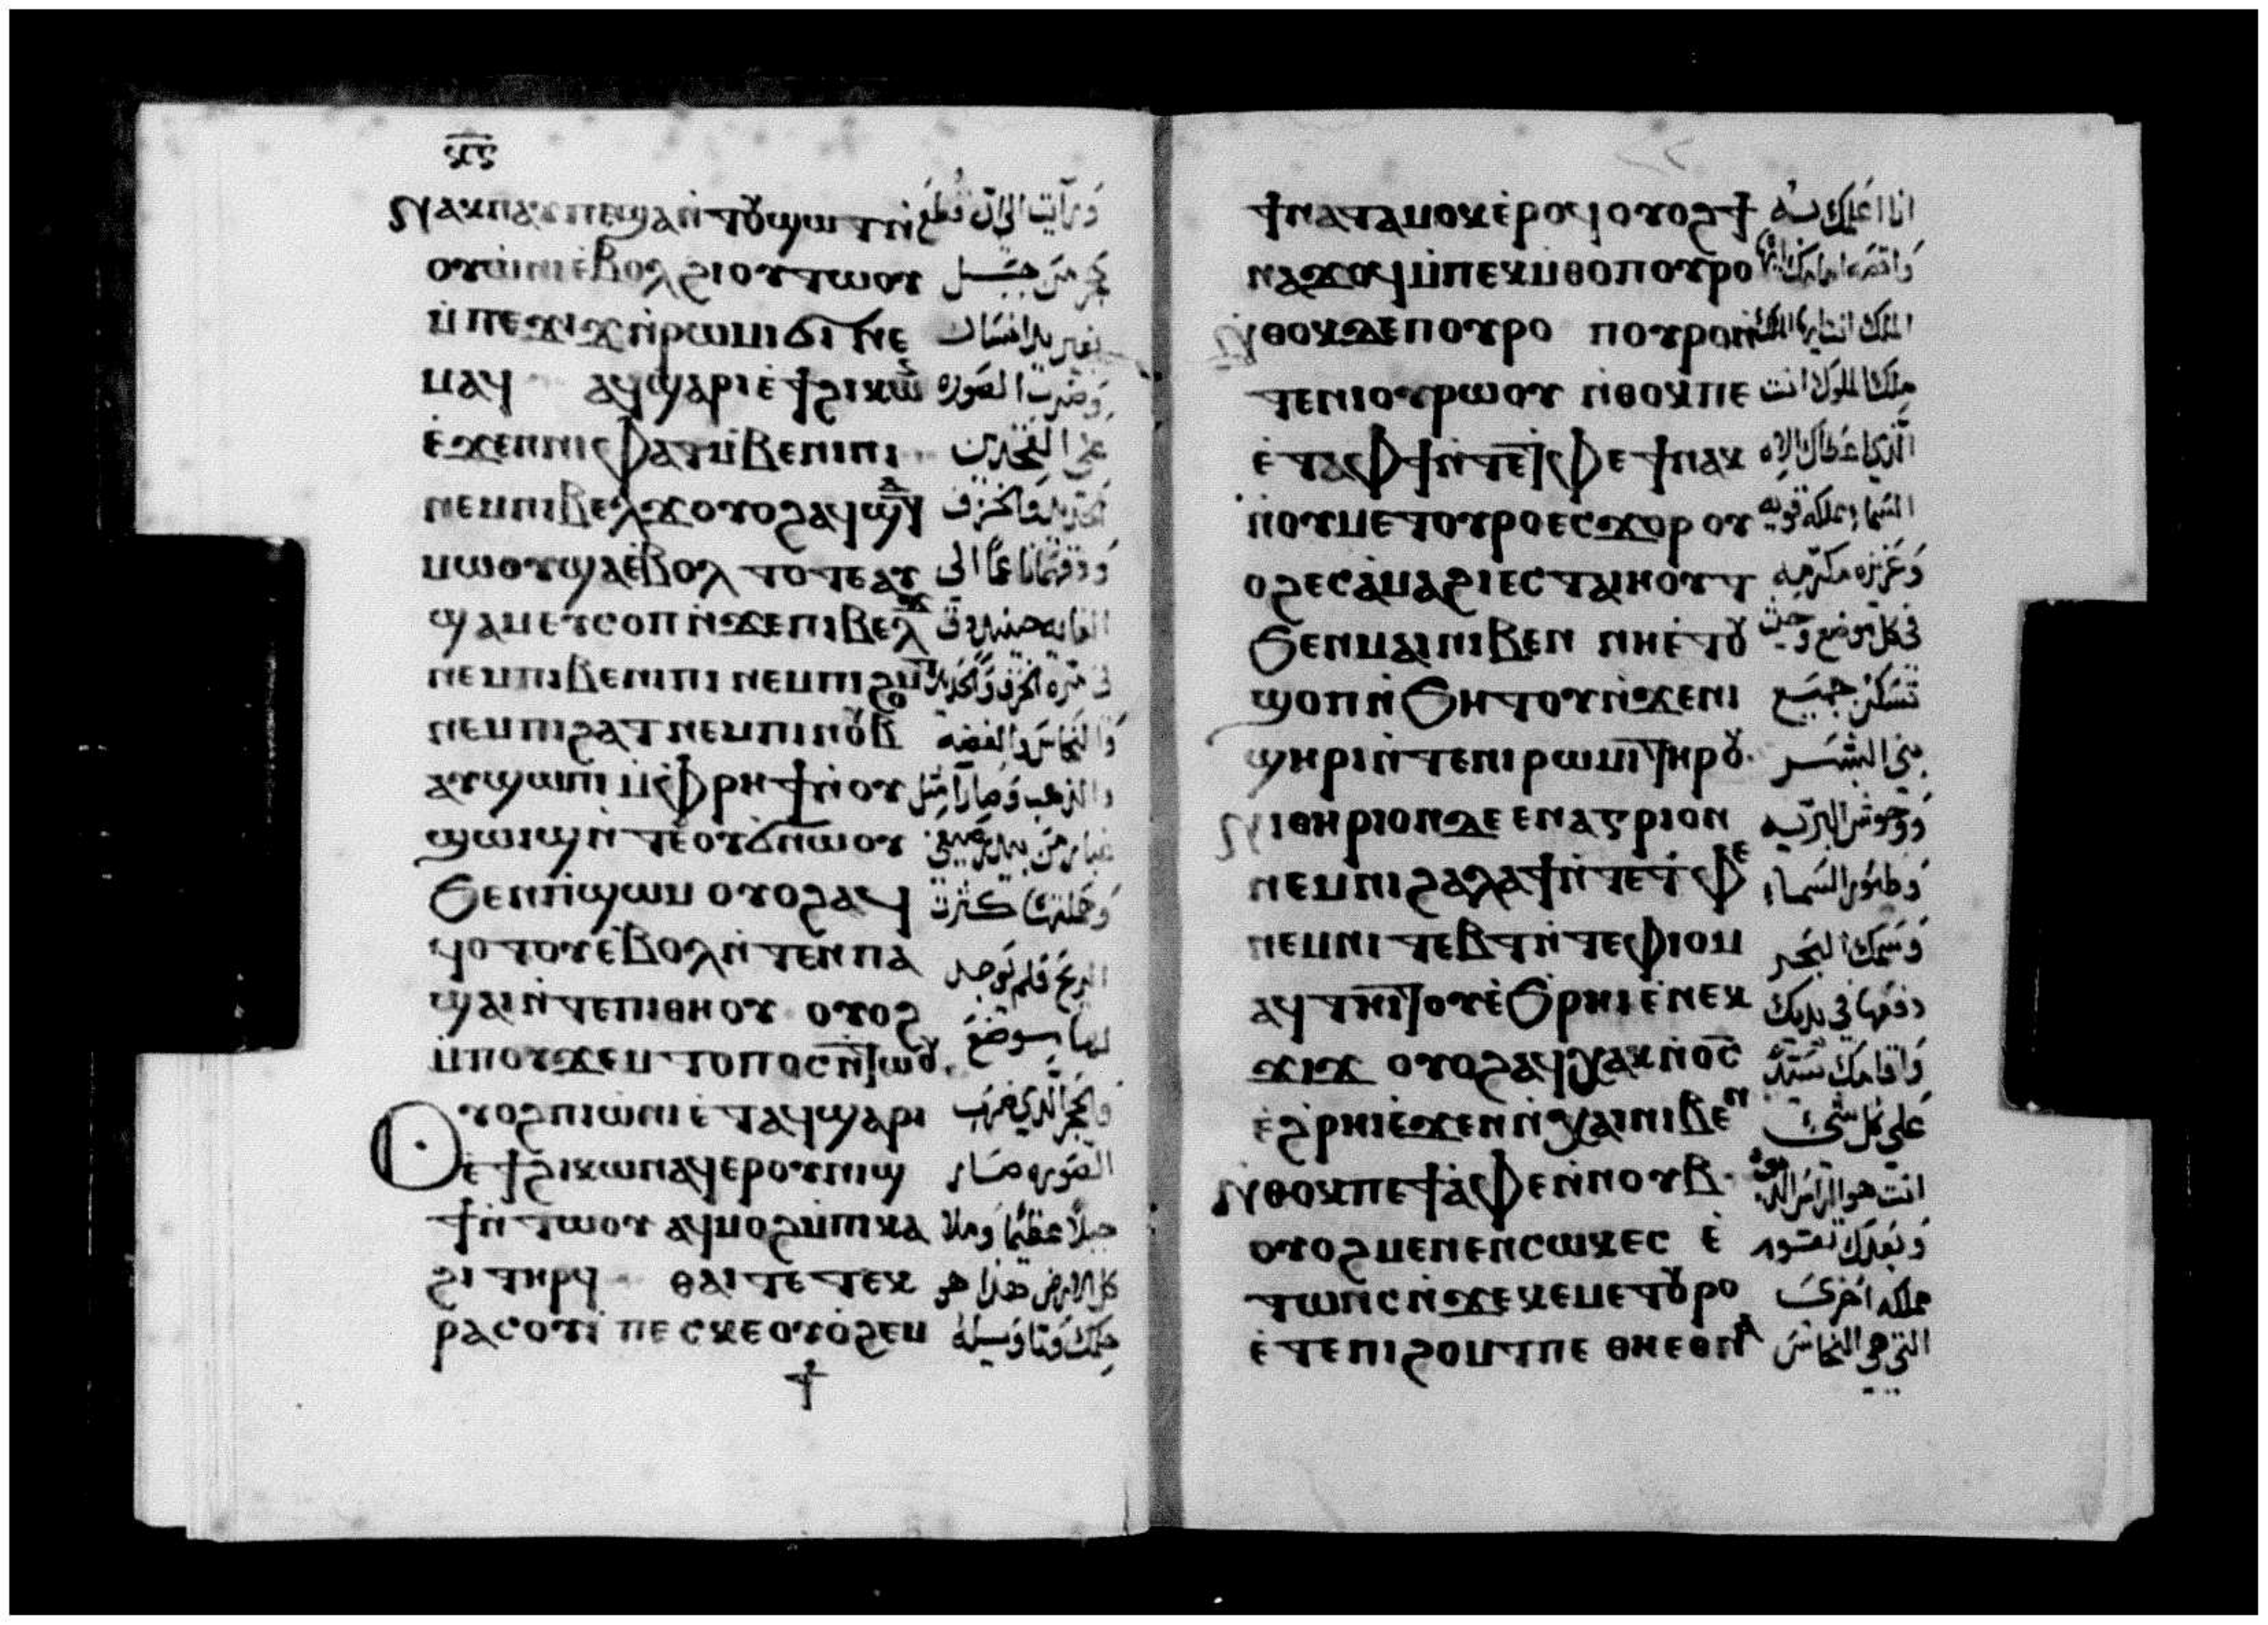 ⲛⲁⲕⲛⲁⲩ ⲡⲉ ϣⲁⲛⲧⲟⲩϣⲱⲧ ⲛ̀ وَرَأيت الى ان قُطع
ⲟⲩⲱ̀ⲛⲓ ⲉ̀ⲃⲟⲗ ϩⲓ ⲟⲩⲧⲱⲟⲩ حجر من جبـــل
ⲙ̀ⲡⲉ ϫⲓϫ ⲛ̀ⲣⲱⲙⲓ ϭⲓ ⲛⲉ بغير يد انسان
ⲙⲁϥ ⲁϥϣⲁⲣⲓ ⲉ̀ϯϩⲓⲕⲱⲛ وضرب الصوره
ⲉ̀ϫⲉⲛ ⲛⲓⲫⲁⲧ ⲙ̀ⲃⲉⲛⲓⲡⲓ على الفخدين
ⲛⲉⲙ ⲙⲃⲉⲗϫ ⲟⲩⲟϩ ⲁϥ الحديد والخزف
ⲙⲱⲟⲩ ϣⲁⲉ̀ⲃⲟⲗ ⲧⲟⲧⲉ ⲁⲩ ودقهما ناعما الى
ϣⲁⲙⲉⲩⲥⲟⲡ ⲛ̀ϫⲉ ⲡⲓⲃⲉⲗϫ الغايه حينيد دق
ⲛⲉⲙ ⲡⲓⲃⲉⲛⲓⲡⲓ ⲛⲉⲙ ⲡⲓϩⲟⲙⲧ فى مره الخزف والحديد
ⲛⲉⲙ ⲡⲓϩⲁⲧ ⲛⲉⲙ ⲡⲓⲛⲟⲩⲃ والنحاس والفضه
ⲁⲩϣⲱⲡⲓ ⲙ̀ⲫⲣⲏϯ ⲛ̀ⲟⲩ والذهب وصارا مثل
ϣⲱⲓϣ ⲛ̀ⲧⲉ ⲟⲩϭⲛⲱⲟⲩ غبار من بيدر صيفى
ϧⲉⲛ ⲡϣⲱⲙ ⲟⲩⲟϩ ⲁϥ وحملتها كثرت
ϥⲟⲧⲟⲩ ⲉ̀ⲃⲟⲗ ⲛ̀ⲧⲉⲛ ⲡⲁ الريح فلم يوجد
ϣⲁⲓ ⲛ̀ⲧⲉ ⲡⲓⲑⲏⲟⲩ ⲟⲩⲟϩ لها موضع
ⲙ̀ⲡⲟⲩϫⲉⲙ ⲧⲟⲡⲟⲥ ⲛ̀ⲧⲱⲟⲩ
ⲟⲩⲟϩ ⲡⲓⲱ̀ⲛⲓ ⲉ̀ⲧⲁϥϣⲁⲣⲓ والحجر الذي ضرب
ⲉ̀ϯϩⲓⲕⲱⲛ ⲁϥⲉⲣ ⲟⲩⲛⲓϣ الصوره صار
ϯ ⲛ̀ⲧⲱⲟⲩ ⲁϥⲙⲟϩ ⲙ̀ⲡⲕⲁ جبلا عظيما وملا
ϩⲓ ⲧⲏⲣϥ ⲑⲁⲓ ⲧⲉ ⲧⲉⲕ كل الارض هذا هو
ⲣⲁⲥⲟⲩⲓ
ϯⲛⲁⲧⲁⲙⲟⲕ ⲉ̀ⲣⲟϥ ⲟⲩⲟϩ ϯ انا اعلمك به
ⲛⲁϫⲟϥ ⲙ̀ⲡⲉⲕⲙ̀ⲑⲟ ⲡⲟⲩⲣⲟ
ⲛ̀ⲑⲟⲕ ϫⲉ ⲡⲟⲩⲣⲟ ⲡⲟⲩⲣⲟ ⲛ̀ الملك انت ايها الملك
ⲧⲉ ⲛⲓⲟⲩⲣⲱⲟⲩ ⲛ̀ⲑⲟⲕ ⲡⲉ ملك الملوك انت
ⲉ̀ⲧⲁ ⲫϯ ⲛ̀ⲧⲉ ⲧⲫⲉ ϯ ⲛⲁⲕ الذي اعطاك الاه
ⲛ̀ⲟⲩⲙⲉⲧⲟⲩⲣⲟ ⲉⲥϫⲟⲣ ⲟⲩ السماء مملكه قويه
ⲟϩ ⲉⲥⲁ̀ⲙⲁϩⲓ ⲉⲥⲧⲁⲓⲏⲟⲩⲧ وعزيزه مكرمه
ϧⲉⲛ ⲙⲁⲓ ⲛⲓⲃⲉⲛ ⲛⲏ ⲉ̀ⲧⲟⲩ فى كل موضع وحيث
ϣⲟⲡ ⲛ̀ϧⲏⲧⲟⲩ ⲛ̀ϫⲉ ⲛⲓ تسكن جميع
ϣⲏⲣⲓ ⲛ̀ⲧⲉ ⲛⲓⲣⲱⲙⲓ ⲧⲏⲣⲟⲩ بني البشـر
ⲛⲓⲑⲏⲣⲓⲟⲛ ϫⲉ ⲉⲛⲁⲅⲣⲓⲟⲛ ووحوش البريه
ⲛⲉⲙ ⲛⲓϩⲁⲗⲁϯ ⲛ̀ⲧⲉ ⲧⲫⲉ وطيور السماء
ⲛⲉⲙ ⲛⲓⲧⲉⲃⲧ ⲛ̀ⲧⲉ ⲫⲓⲟⲙ وسمك البحر
ⲁϥⲧⲏⲓⲧⲟⲩ ⲉ̀ϧⲣⲏⲓ ⲉ̀ⲛⲉⲕ دفعها فى يديك
ϫⲓϫ ⲟⲩⲟϩ ⲁϥⲭⲁⲕ ⲛ̀ⲟ̅ⲥ̅ واقامك سيد
ⲉ̀ϩⲣⲏⲓ ⲉ̀ϫⲉⲛ ⲛ̀ⲭⲁⲓ ⲛⲓⲃⲉⲛ على كل شى
ⲛ̀ⲑⲟⲕ ⲡⲉ ϯⲁ̀ⲫⲉ ⲛ̀ⲛⲟⲩⲃ انت هو الراس الذهب
ⲟⲩⲟϩ ⲙⲉⲛⲉⲛⲥⲱⲕ ⲉⲥⲉ̀ وبعدك تقوم
ⲧⲱⲛⲥ ⲛ̀ϫⲉ ⲕⲉⲙⲉⲧⲟⲩⲣⲟ مملكه اخرى
ⲉ̀ⲧⲉ ⲡⲓϩⲟⲙⲧ ⲡⲉ ⲑⲏ ⲉⲑⲛⲁ التي هي النحاس